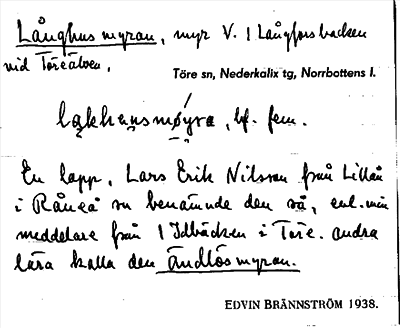 Långhusmyran, myr V. I Långforsbacken
vid Töreälven.
Töre sn, Nederkalix tg, Norrbottens l.
bf. fem.
En lapp, Lars Erik Nilsson från Lillån
i Råneå sn benämnde den så, enl. min
meddelare från I Idbäcken i Töre. Andra
lära kalla den Ändlösmyran.
EDVIN BRÄNNSTRÖM 1938.